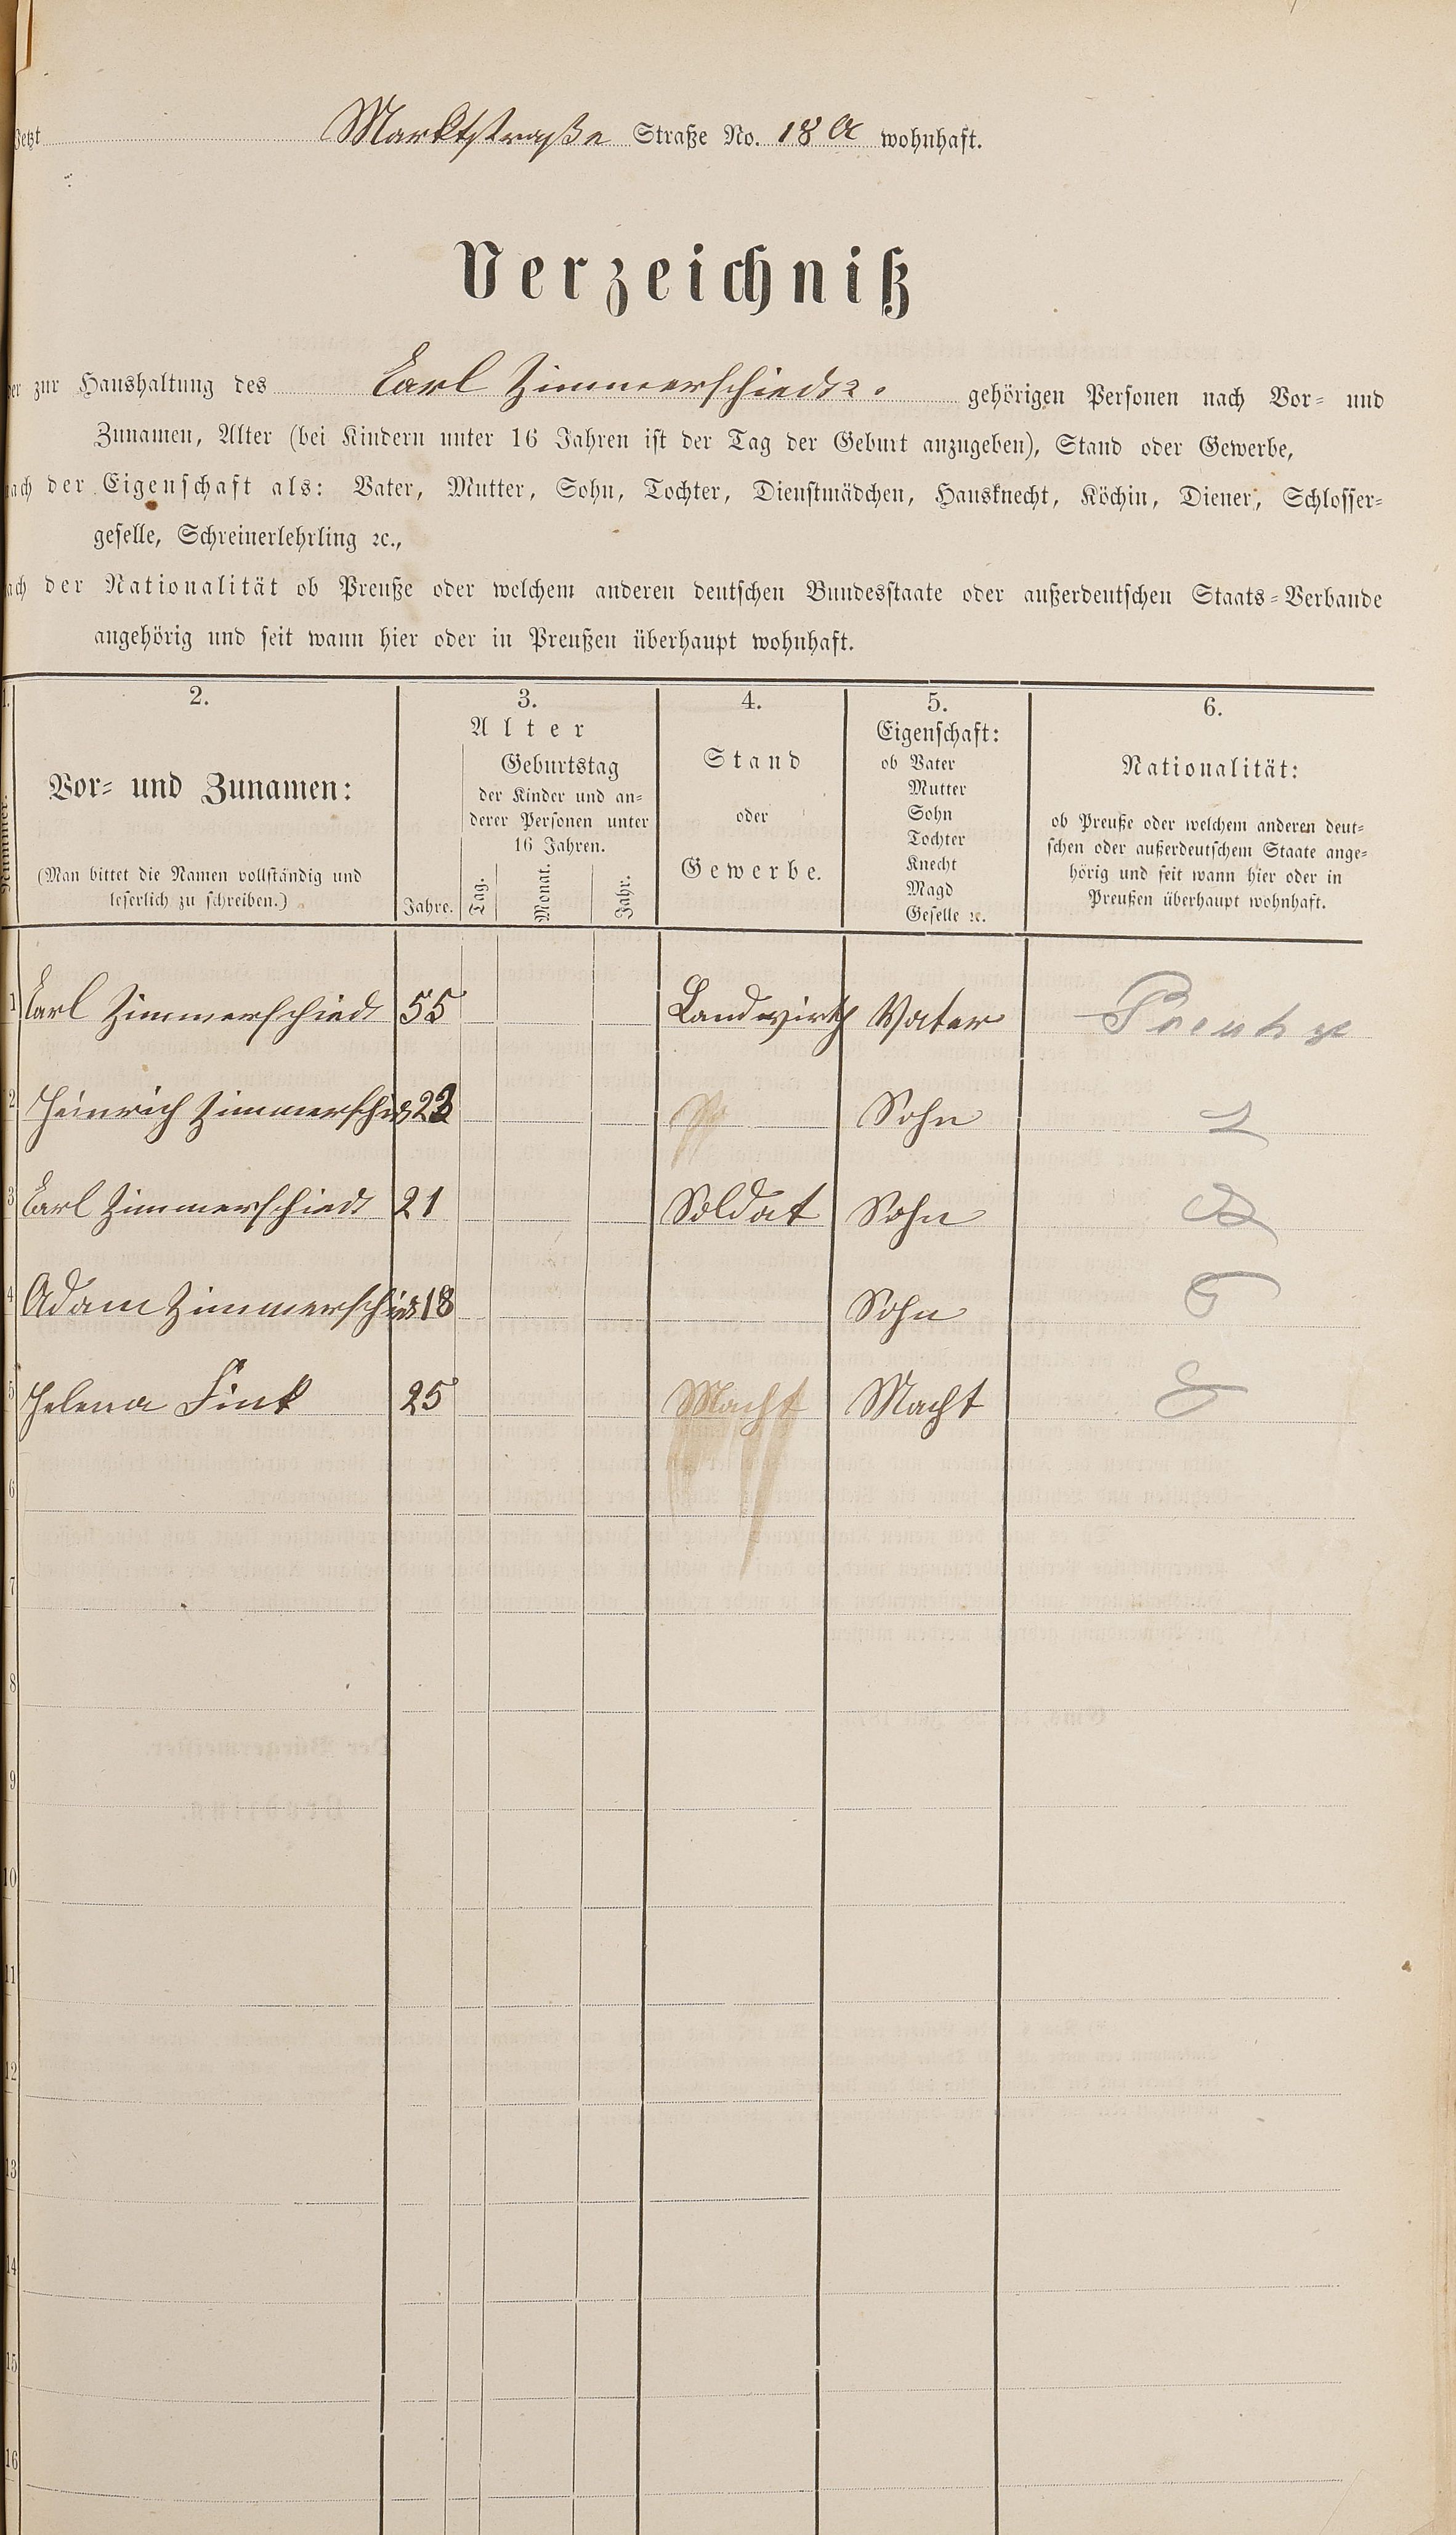 Jetzt Marktstraße Straße No. 18 a wohnhaft.
Verzeichniß
der zur Haushaltung des Carl Zimmerschied gehörigen Personen nach Vor- und
Zunamen, Alter (bei Kindern unter 16 Jahren ist der Tag der Geburt anzugeben), Stand oder Gewerbe,
nach der Eigenschaft als: Vater, Mutter, Sohn, Tochter, Dienstmädchen, Hausknecht, Köchin, Diener, Schlosser-
geselle, Schreinerlehrling ꝛc.,
nach der Nationalität ob Preuße oder welchem anderen deutschen Bundesstaate oder außerdeutschen Staats-Verbande
angehörig und seit wann hier oder in Preußen überhaupt wohnhaft.
1.
Nummer.
2.
Vor- und Zunamen:
(Man bittet die Namen vollständig und
leserlich zu schreiben.)
3.
Alter
Geburtstag
der Kinder und an-
derer Personen unter
16 Jahren.
Jahre. Tag. Monat. Jahr.
4.
Stand
oder
Gewerbe.
5.
Eigenschaft:
ob Vater
Mutter
Sohn
Tochter
Knecht
Magd
Geselle ꝛc.
6.
Nationalität:
ob Preuße oder welchem anderen deut-
schen oder außerdeutschem Staate ange-
hörig und seit wann hier oder in
Preußen überhaupt wohnhaft.
1 Carl Zimmerschied 55 Landwirth Vater Preuße
2 Heinrich Zimmerschied 23 Sohn
3 Carl Zimmerschied 21 Soldat Sohn
4 Adam Zimmerschied 18 Sohn
5 Helena Fink 25 Macht Macht
6
7
8
9
10
11
12
13
14
15
16